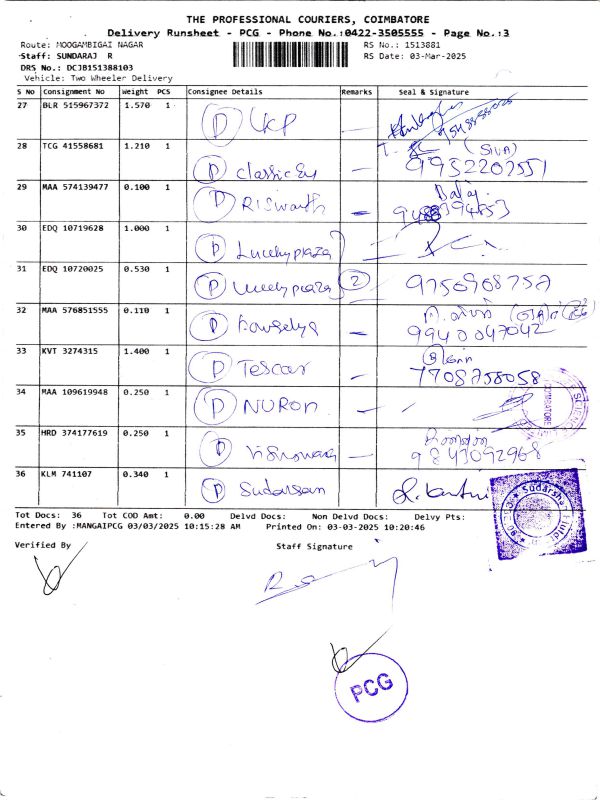 THE PROFESSIONAL COURIERS, COIMBATORE
Delivery Runsheet - PCG - Phone No.:0422-3505555 - Page No.:3
Route: MOOGAMBIGAI NAGAR RS No.: 1513881
Staff: SUNDARAJ R RS Date: 03-Mar-2025
DRS No.: DCJB151388103
Vehicle: Two Wheeler Delivery
S No Consignment No Weight PCS Consignee Details Remarks Seal & Signature
27 BLR 515967372 1.570 1 D UKP
28 TCG 41558681 1.210 1 D (SIVA)
9952207551
29 MAA 574139477 0.100 1 D Balaji
30 EDQ 10719628 1.000 1 D
31 EDQ 10720025 0.530 1 D 2 9750908757
32 MAA 576851555 0.110 1 D
9940047042
33 KVT 3274315 1.400 1 D Tescar
7708758058
34 MAA 109619948 0.250 1 D NURON
COIMBATORE
35 HRD 374177619 0.250 1 D
9843092968
36 KLM 741107 0.340 1 D Sudarsan
Tot Docs: 36 Tot COD Amt: 0.00 Delvd Docs: Non Delvd Docs: Delvy Pts:
Entered By :MANGAIPCG 03/03/2025 10:15:28 AM Printed On: 03-03-2025 10:20:46
Verified By Staff Signature
PCG